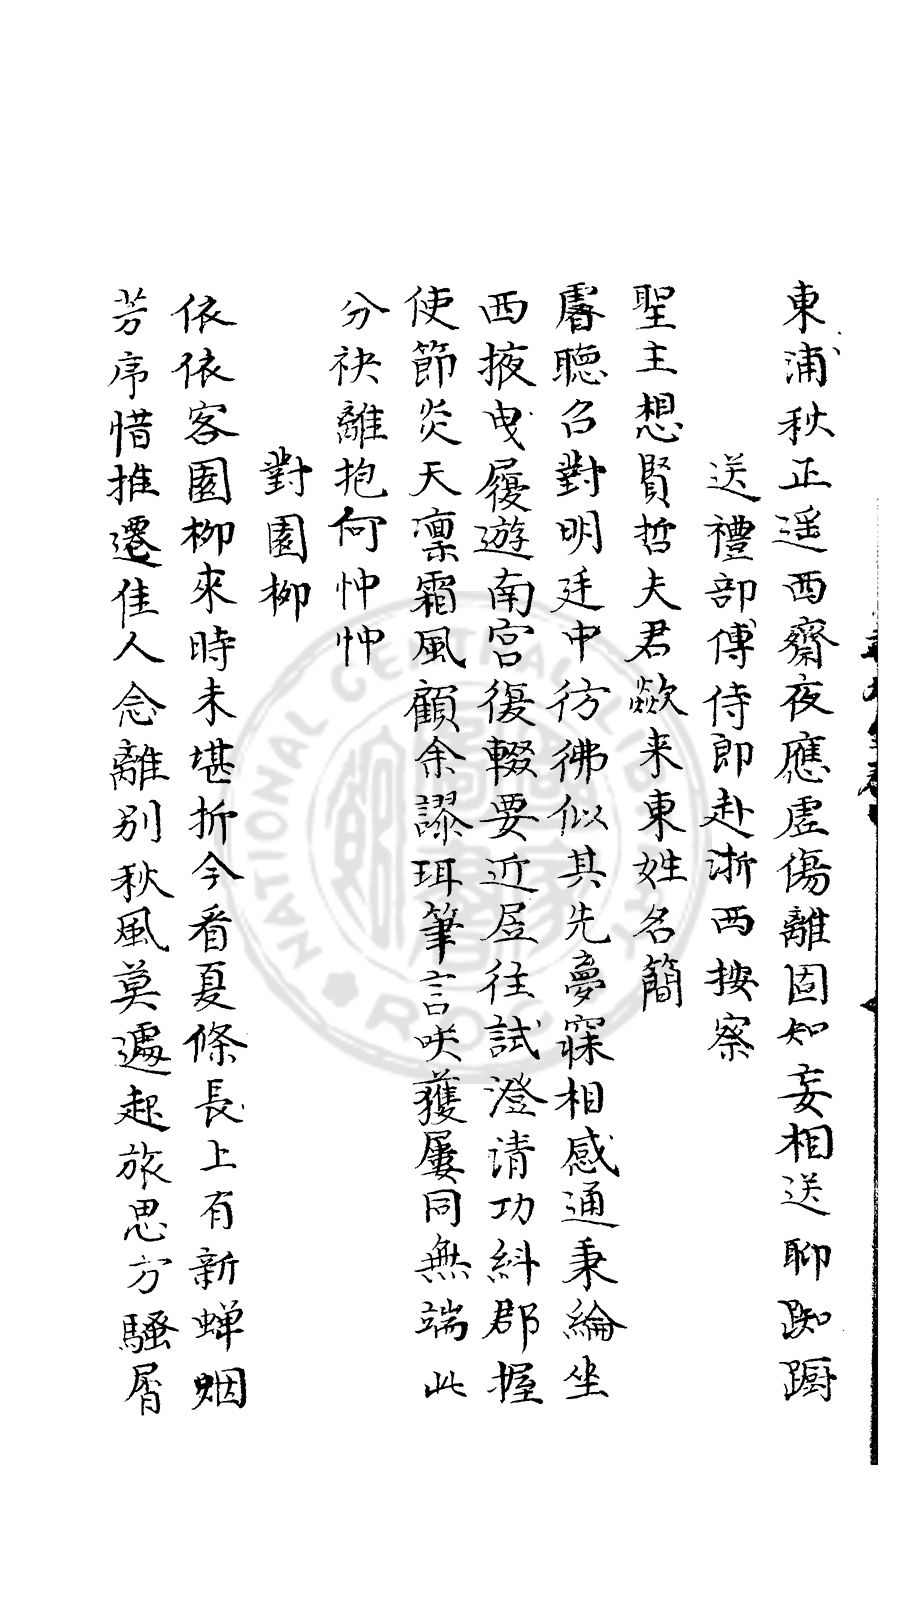 東浦秋正遥西齋夜應虛傷離固知妄相送聊踟蹰
送禮部傅侍郎赴浙西按察
聖主想賢哲夫君歘来東姓名簡
睿聽召對明廷中彷彿似其先夢寐相感通秉綸坐
西掖曳履遊南宮復輟要近居往試澄清功糾郡握
使節炎天凛霜風顧余謬珥筆言咲獲屢同無端此
分袂離抱何忡忡
對園柳
依依客園柳來時未堪折今看夏條長上有新蝉烟
芳序惜推遷佳人念離別秋風莫遽起旅思方騷屑
NATIONAL CENTRAL LIBRARY R.O.C.